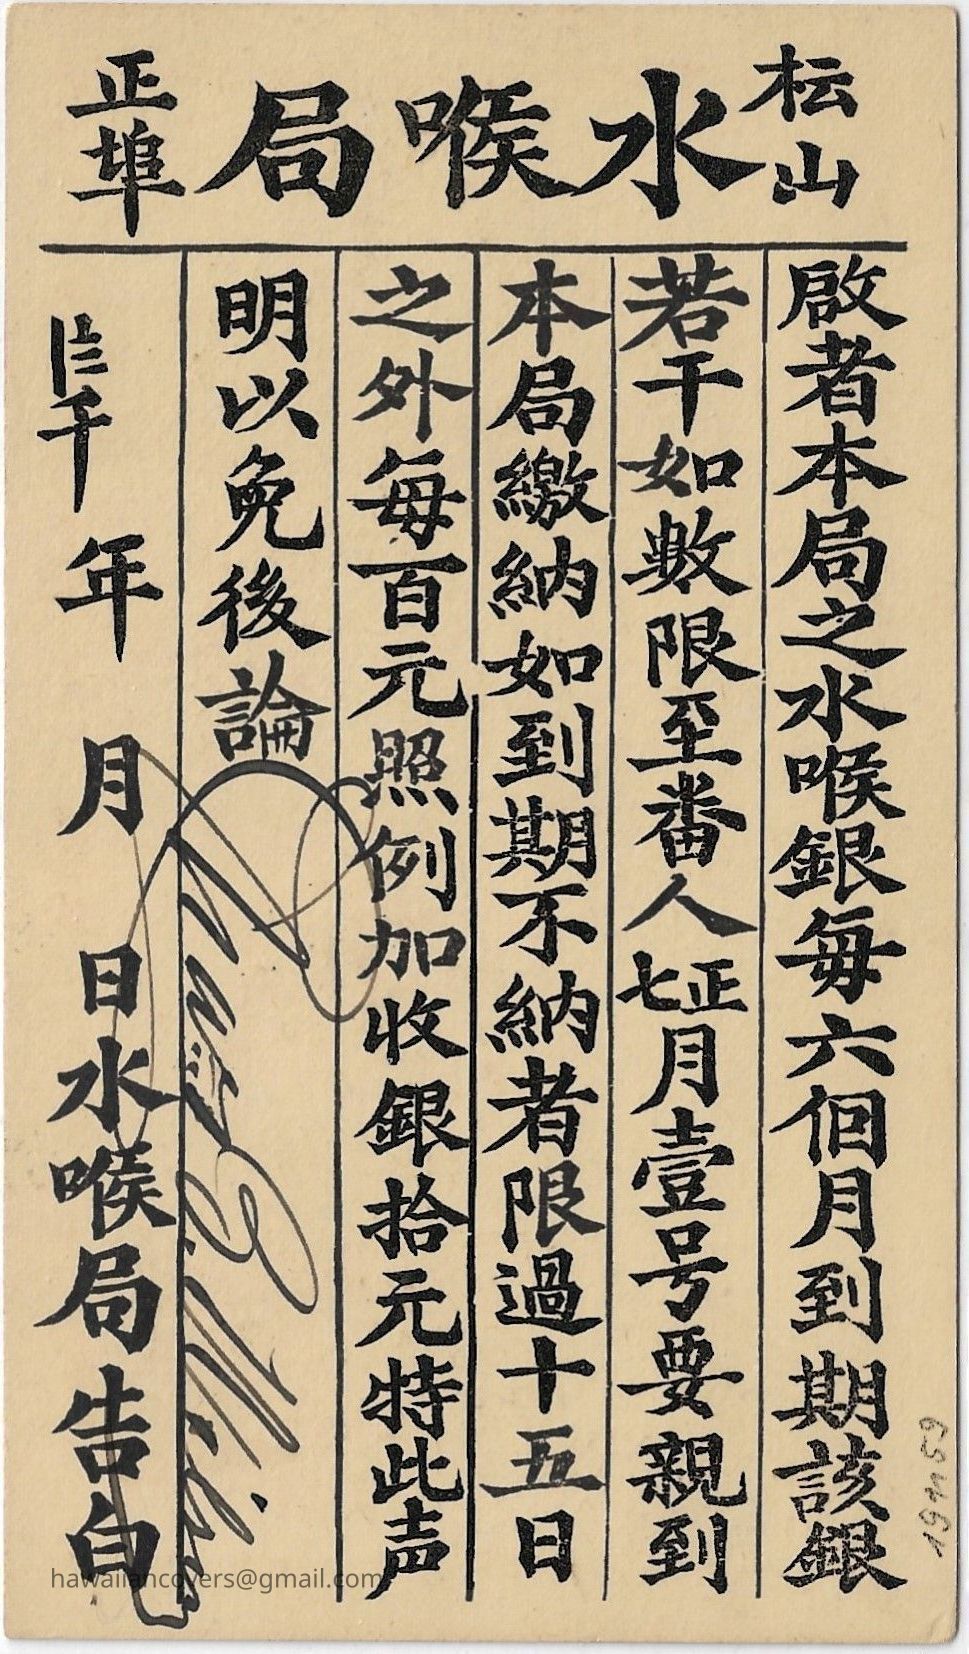 枟山
水喉局
正埠
啟者本局之水喉銀每六個月到期該銀
若干如數限至番人正七月壹号要親到
本局繳納如到期不納者限過十五日
之外每百元照例加收銀拾元特此声
明以免後論
年 月 日水喉局告白
hawaiiancovers@gmail.com